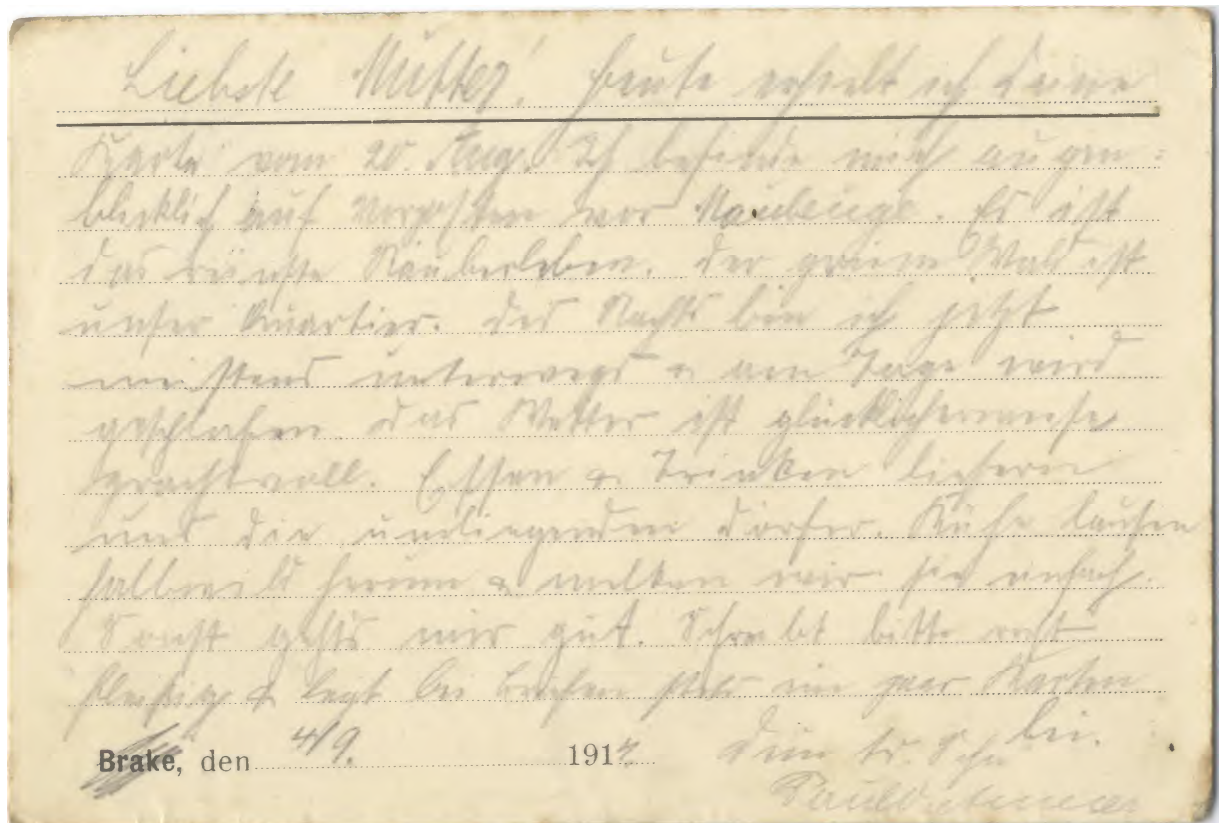 Liebste Mutter! Heute erhielt ich Deine
Karte vom 20. Aug. Ich befinde mich augen-
blicklich auf Vorposten vor Maubeuge. Es ist
das reinste Räuberleben. Der grüne Wald ist
unser Quartier. Des Nachts bin ich jetzt
meistens unterwegs & am Tage wird
geschlafen. Das Wetter ist glücklicherweise
prachtvoll. Essen & Trinken liefern
uns die umliegenden Dörfer. Kühe laufen
halbwild herum & melken wir sie einfach.
Sonst gehts mir gut. Schreibt bitte recht
fleißig & legt bei Briefen stets ein paar Karten
bei.
Brake, den 4/9. 1914 Dein tr. Sohn